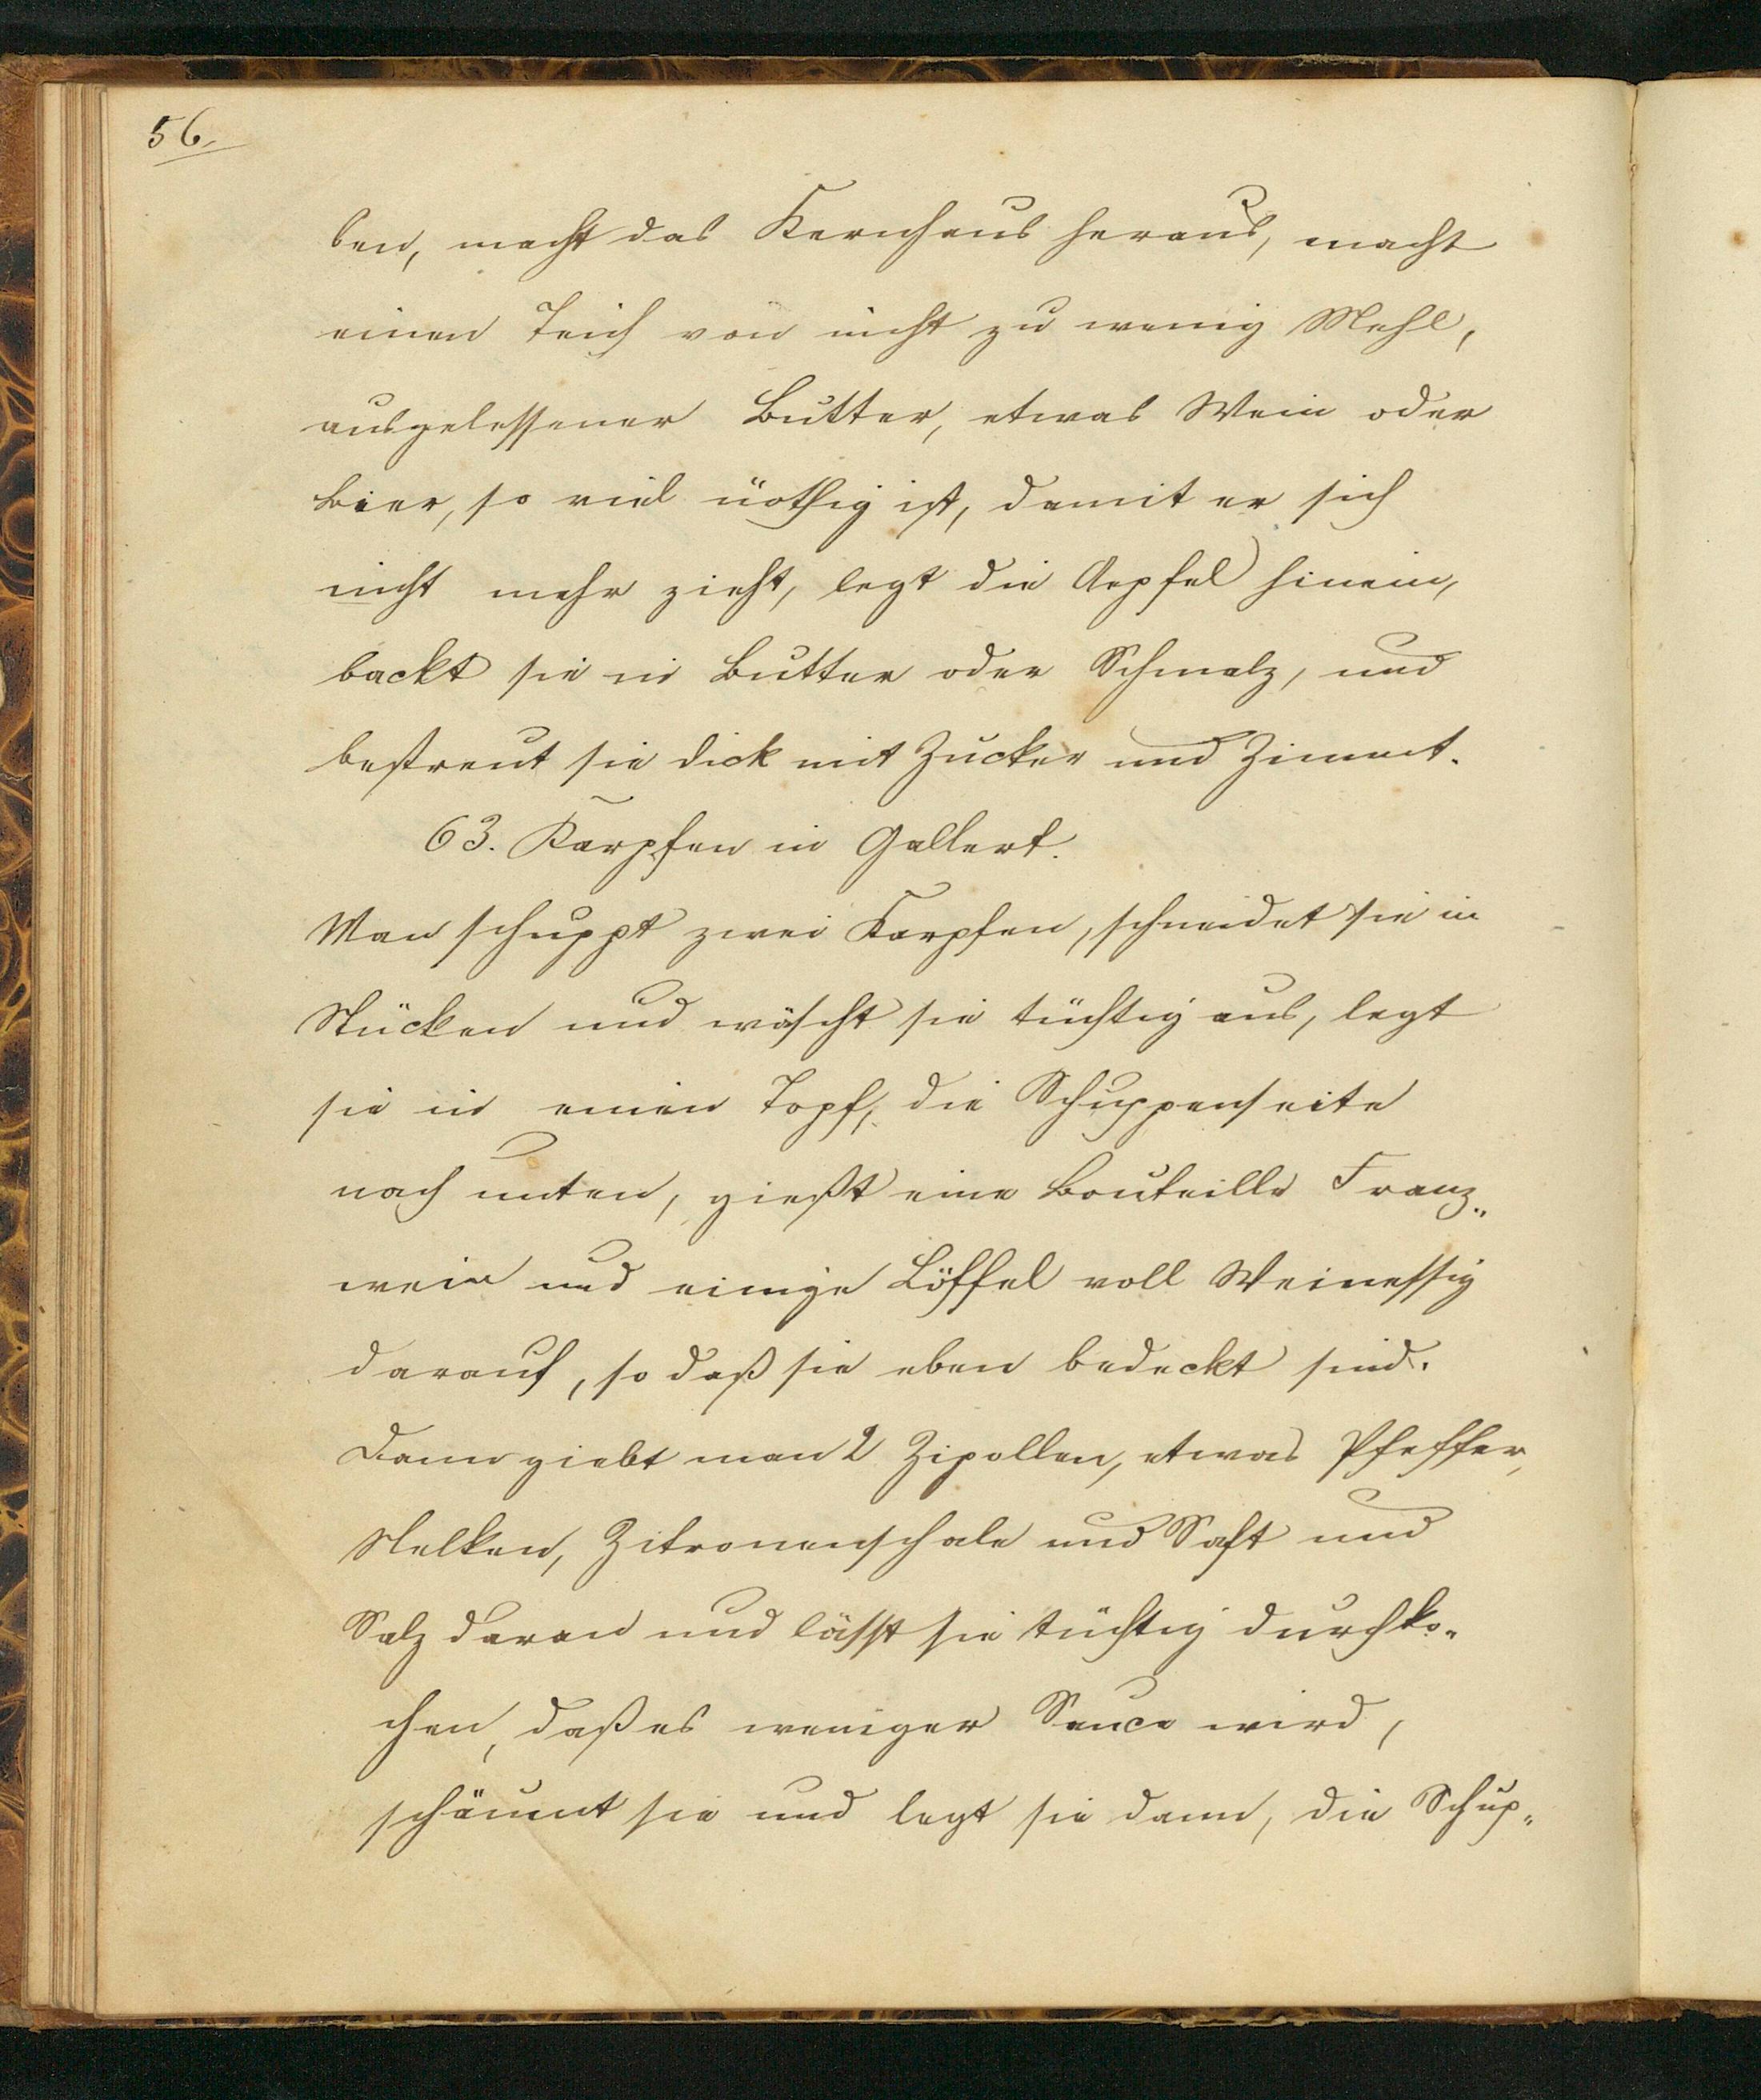 56.
ben, macht das Kernhaus heraus, macht
einen Teich von nicht zu wenig Mehl,
ausgelessener Butter, etwas Wein oder
Bier, so viel nöthig ist, damit er sich
nicht mehr zieht, legt die Aepfel hinein,
backt sie in Butter oder Schmalz, und
bestreut sie dick mit Zucker und Zimmt.
63. Karpfen in Gallert.
Man schuppt zwei Karpfen, schneidet sie in
Stücken und wäscht sie tüchtig aus, legt
sie in einen Topf, die Schuppenseite
nach unten, gießt eine Bouteille Franz„
wein und einige Löffel voll Weinessig
darauf, so daß sie eben bedeckt sind.
Dann giebt man 2 Zipollen, etwas Pfeffer,
Nelken, Zitronenschale und Saft und
Salz daran und lässt sie tüchtig durchko„
chen, daß es weniger Sauce wird,
schäumt sie und legt sie dann, die Schup„